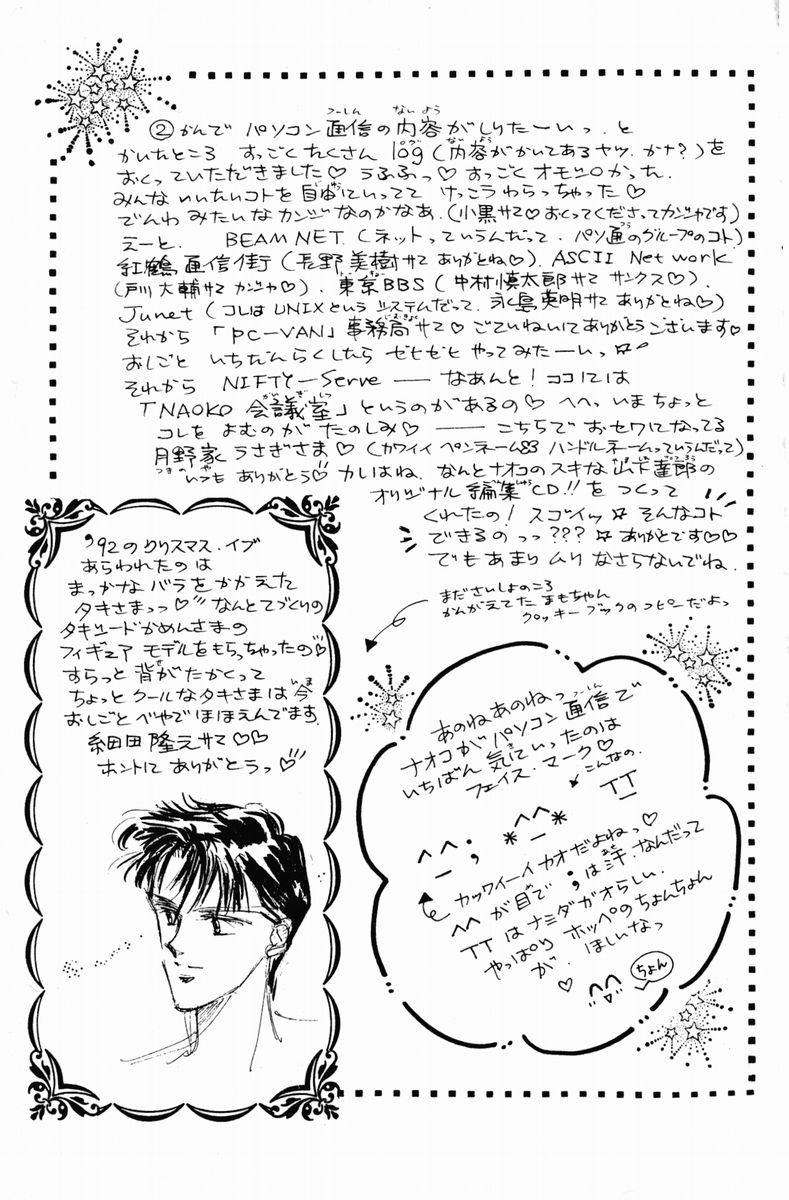 ②かんで パソコン通信の内容がしりたーいっ.と
かいたところ すっごくたくさん log(内容がかいてあるヤツ.カナ?)を
おくっていただきました♡ うふふっ♡ すっごくオモシロかった.
みんな いいたいコトを自由にいってて けっこうわらっちゃった♡
でんわ みたいな カンジなのかなあ.(小黒サマ♡おくってくださってカンシャです)
えーと. BEAM NET.(ネットっていうんだって.パソ通のグループのコト)
紅鶴通信街(長野美樹サマ ありがとね♡). ASCII Net work
(戸川大輔サマ カンシャ♡). 東京BBS(中村慎太郎サマ サンクス♡).
Junet(コレはUNIXという システムだって.永島英明サマ ありがとね♡)
それから 「PC-VAN」事務局サマ♡ ごていねいにありがとうございます♡
おしごと いちだんらくしたら ゼヒゼヒ やってみたーいっ☆
それから NIFTY-Serve ── なあんと! ココには
「NAOKO 会議室」というのがあるの♡ へへっ いまちょっと
コレを よむのが たのしみ♡ ── こちらで おセワになってる
月野家うさぎさま♡(カワイイ ペンネーム!! ハンドルネームっていうんだって)
いつも ありがとう♡ カレはね. なんとナオコのスキな 山下達郎の
オリジナル 編集CD!!を つくって
くれたの! スゴイッ☆ そんなコト
できるのっっ??? ☆ ありがとです♡♡
でもあまり ムリ なさらないでね.
まださいしょのころ
かんがえてた まもちゃん
クッキーブックのコピーだよっ
'92のクリスマス.イブ
あらわれたのは
まっかな バラを かかえた
タキさまっっ♡ なんとてづくりの
タキシードかめんさまの
フィギュア モデルをもらっちゃったの♡
すらっと 背がたかくって
ちょっと クールなタキさまは 今
おしごと べやで ほほえんでます.
細田隆之サマ♡♡
ホントに ありがとうっ♡
あのねあのねっ
ナオコがパソコン通信で
いちばん 気にいったのは
フェイス.マーク♡
こんなの.
TT
^^; *^^* 
カッワイーイ カオだよねっ♡
^^が目で ;は汗.なんだって
TTはナミダガオらしい.
やっぱり ホッペのちょんちょん
が. ほしいなっ
♡ ^^
ちょん